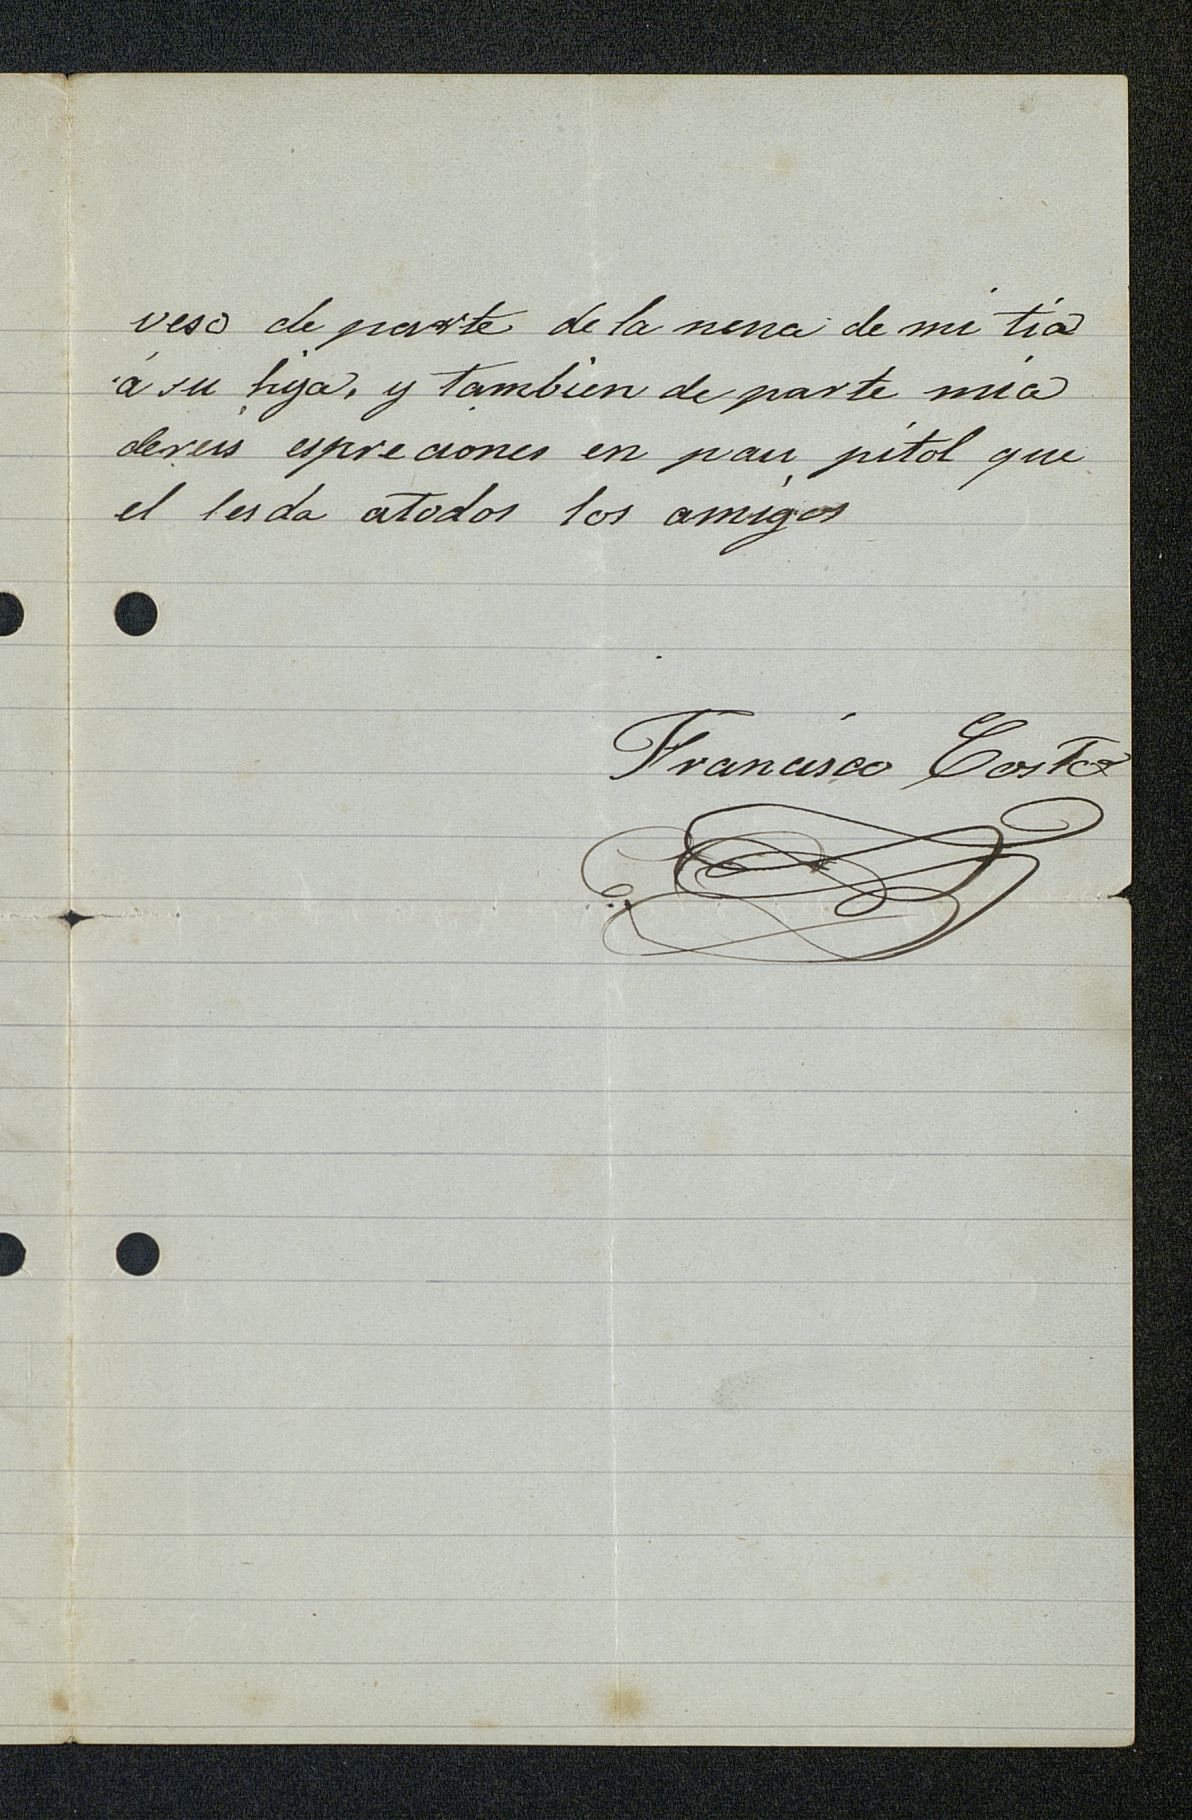 veso de parte de la nena de mi tia
á su hija, y tambien de parte mia
dereis espreciones en pau pitol que
el les da atodos los amigos
Francisco Costa